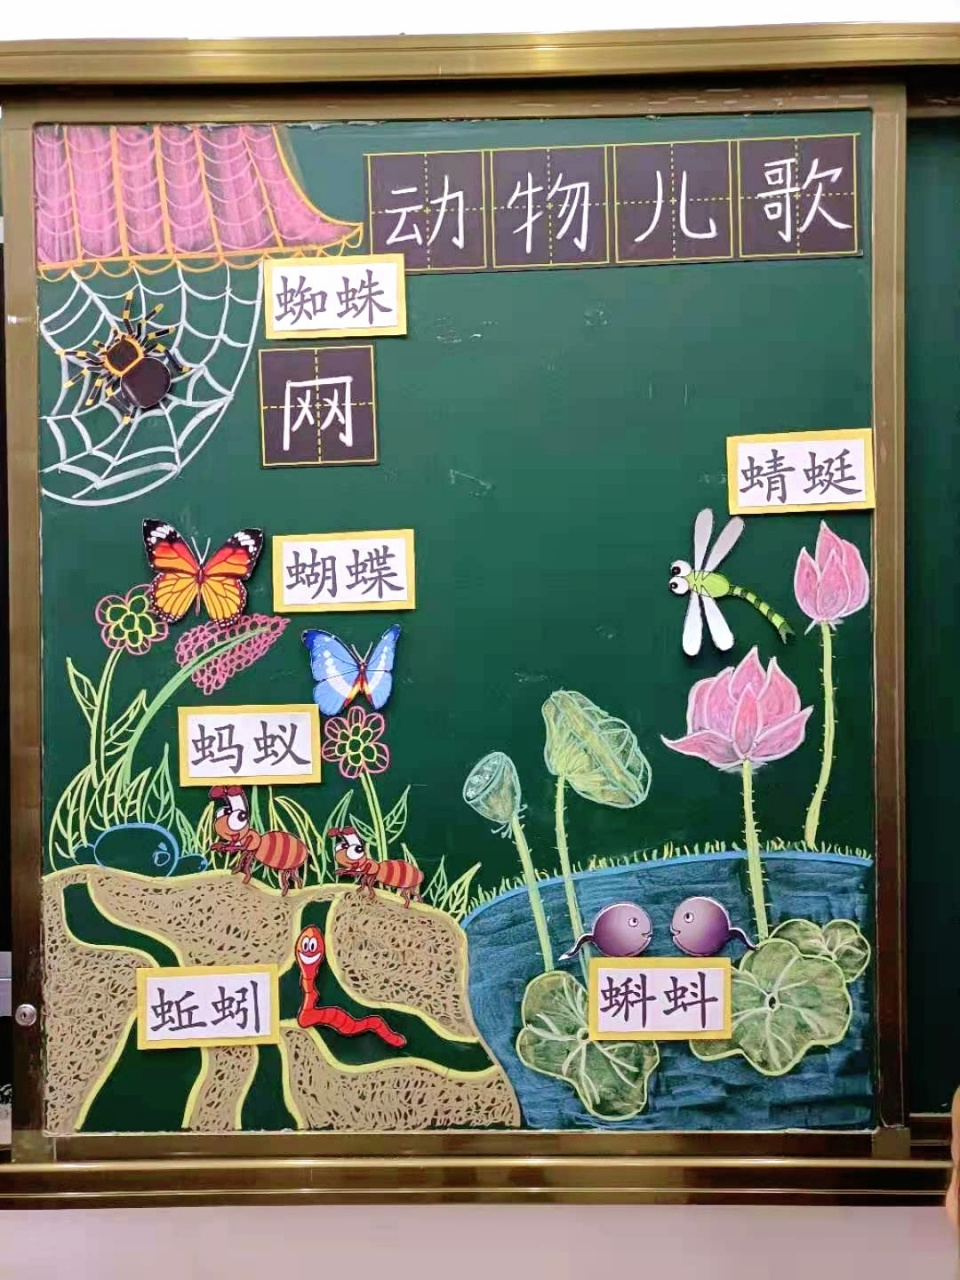 动物儿歌
蜘蛛
网
蜻蜓
蝴蝶
蚂蚁
蚯蚓
蝌蚪